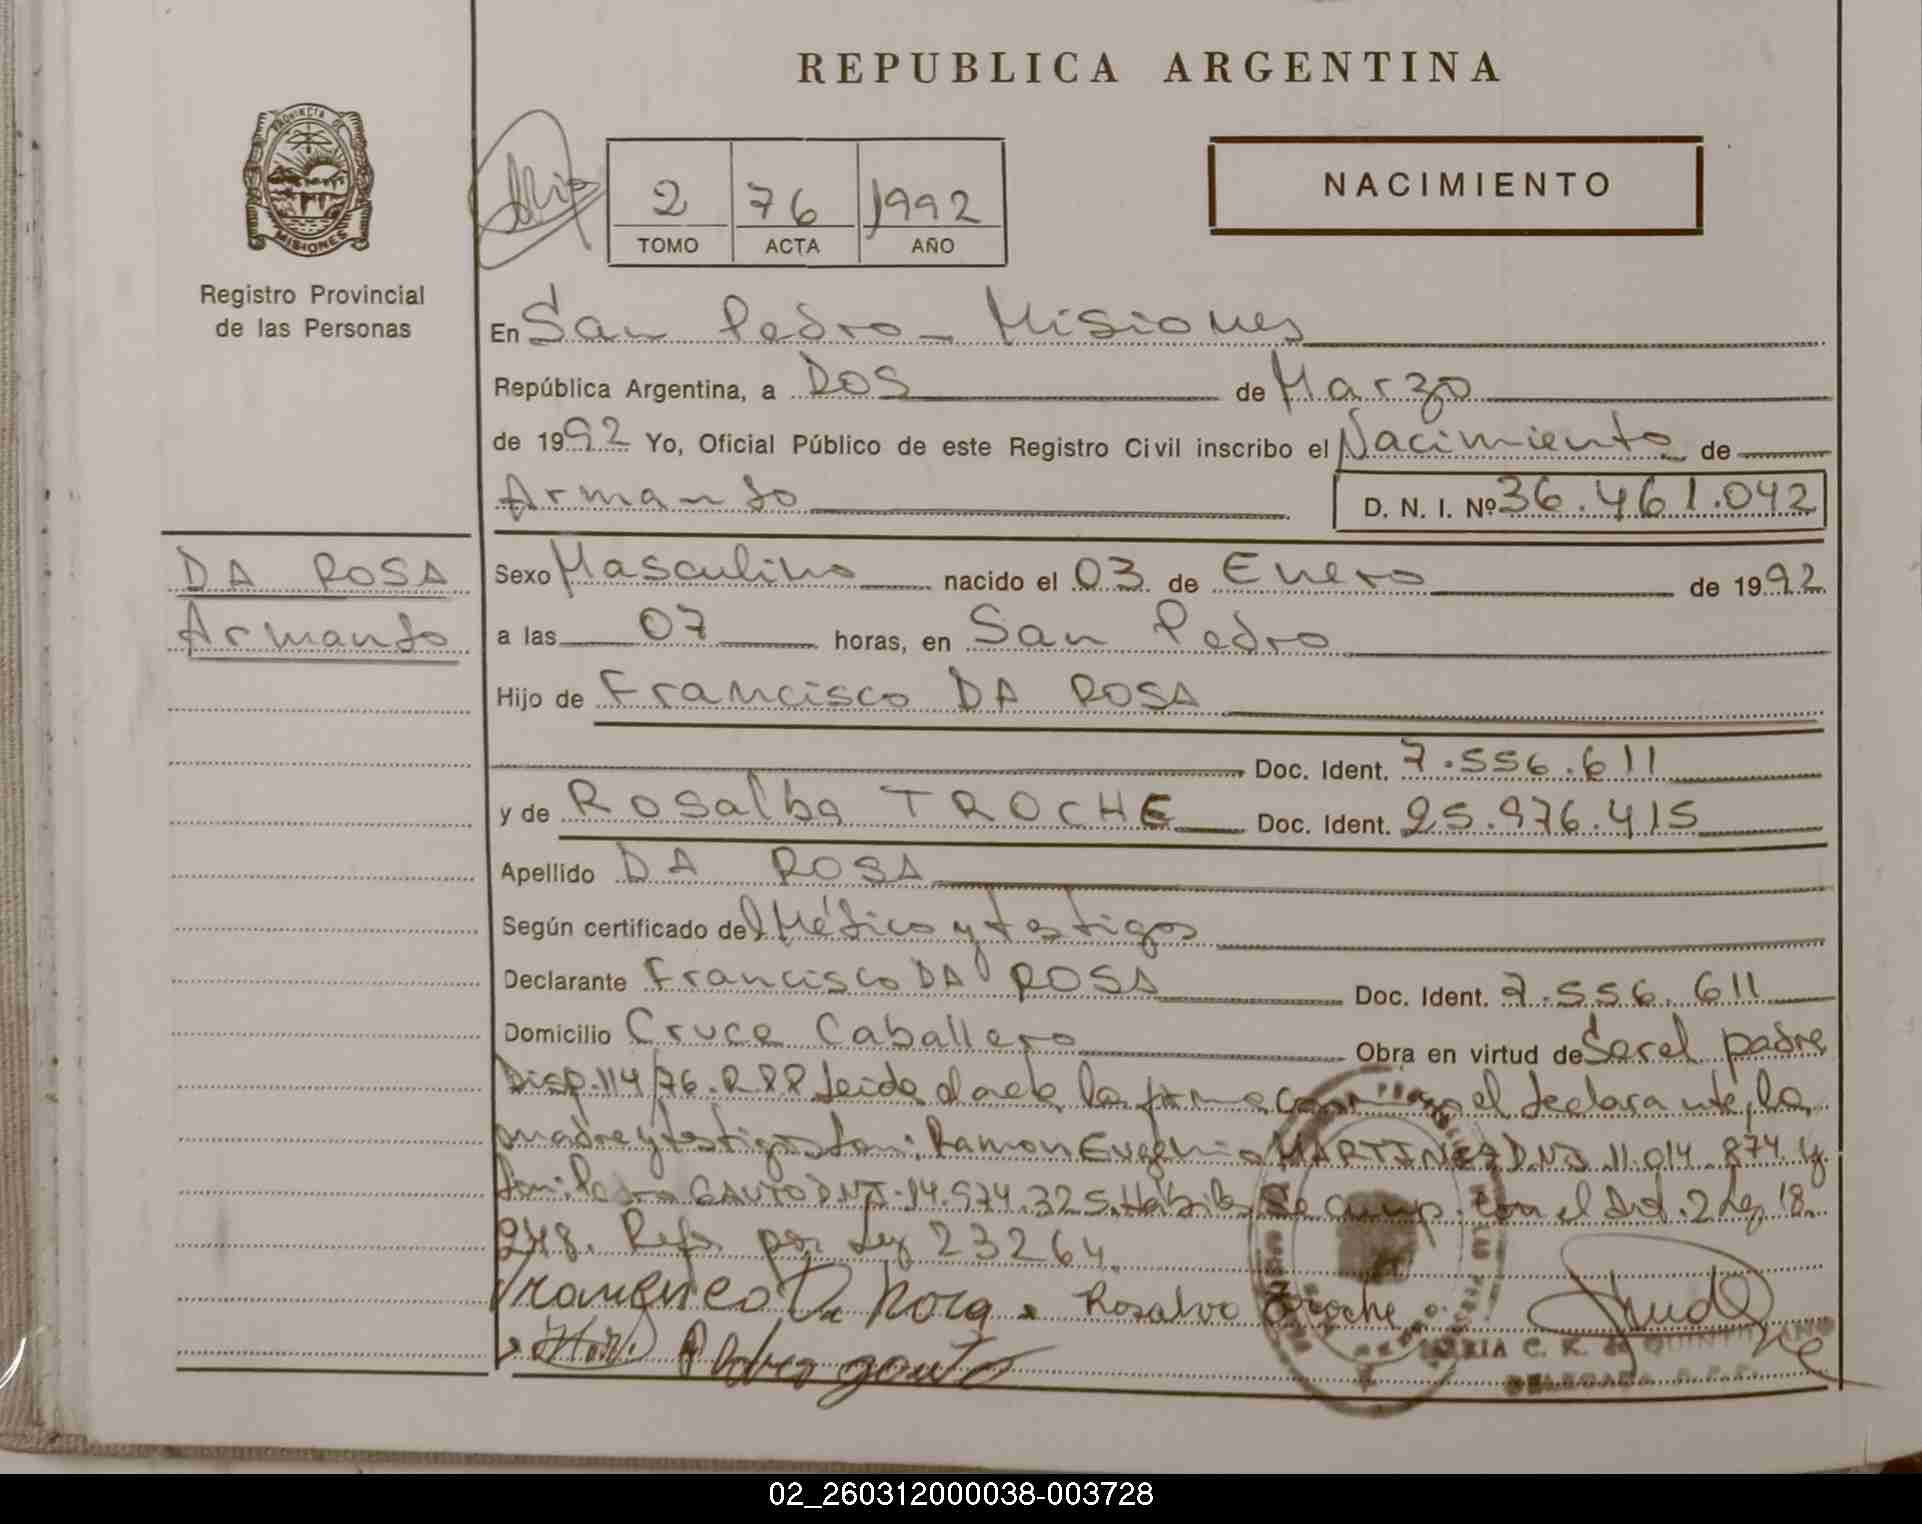 REPUBLICA ARGENTINA
PROVINCIA DE
MISIONES
Registro Provincial
de las Personas
2 76 1992
TOMO ACTA AÑO
NACIMIENTO
En San Pedro - Misiones
República Argentina, a DOS de Marzo
de 1992 Yo, Oficial Público de este Registro Civil inscribo el Nacimiento de
Armando D. N. I. Nº 36.461.042
DA ROSA
Armando
Sexo Masculino nacido el 03 de Enero de 1992
a las 07 horas, en San Pedro
Hijo de Francisco DA ROSA
Doc. Ident. 7.556.611
y de Rosalba TROCHE Doc. Ident. 25.976.415
Apellido DA ROSA
Según certificado del Médico y testigos
Declarante Francisco DA ROSA Doc. Ident. 7.556.611
Domicilio Cruce Caballero Obra en virtud de Ser el padre
Disp. 114/76. R.P.P Leida el acta la firma conmigo el declarante, la
madre y testigos Don: Ramon Eugenio MARTINEZ DNI 11.014.874 y
Don: Pedro GAUTO DNI. 14.974.325. Hábiles Se cump. con el Art. 2 Ley 18.
248. Refor por Ley 23264.
Francisco Da Rosa Rosalva Troche
Pedro gauto
MARIA C. K. de QUINTANA
DELEGADA R.P.P.
02_260312000038-003728